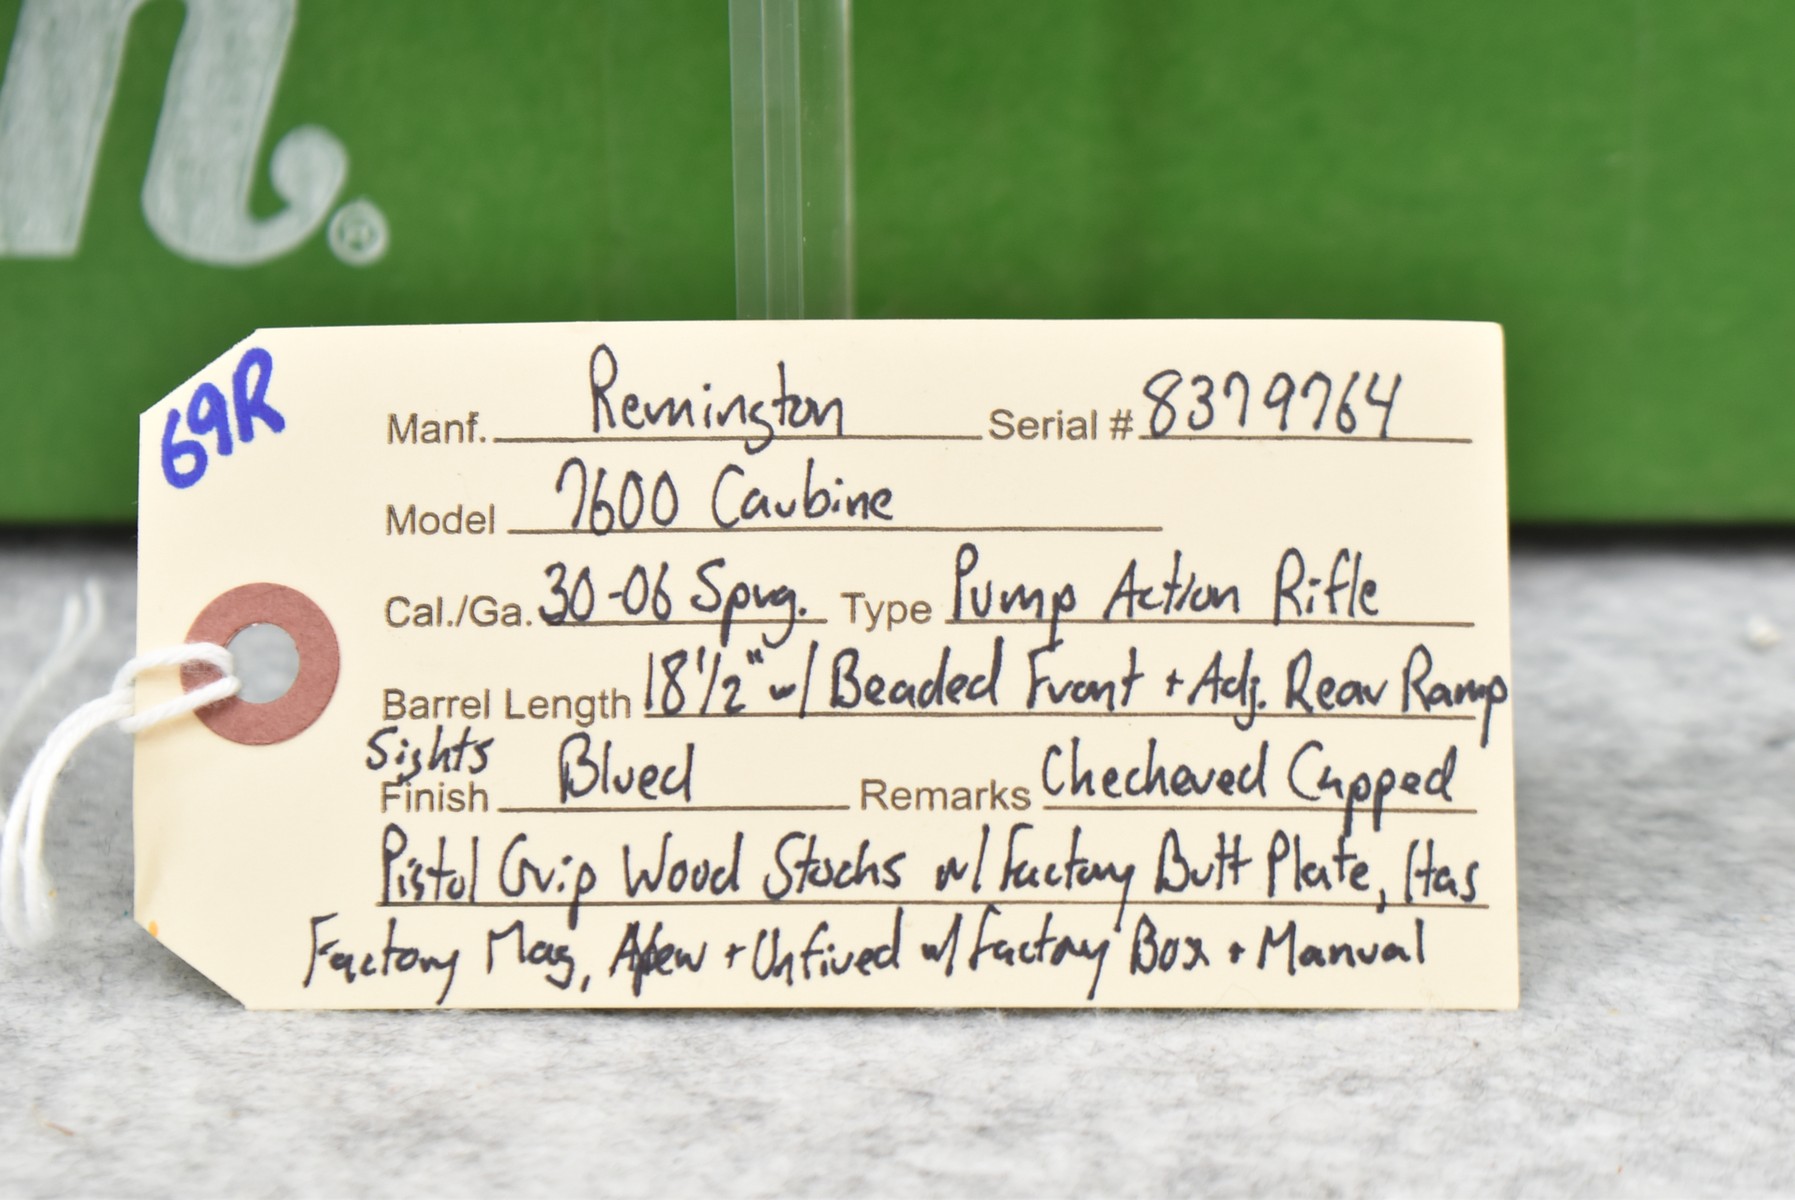 n®
69R
Manf. Remington Serial # 8379764
Model 7600 Carbine
Cal./Ga. 30-06 Sprg. Type Pump Action Rifle
Barrel Length 18 1/2" w/ Beaded Front + Adj. Rear Ramp
Sights
Finish Blued Remarks Checkered Capped
Pistol Grip Wood Stocks w/ Factory Butt Plate, Has
Factory Mag, New + Unfired w/ Factory Box + Manual